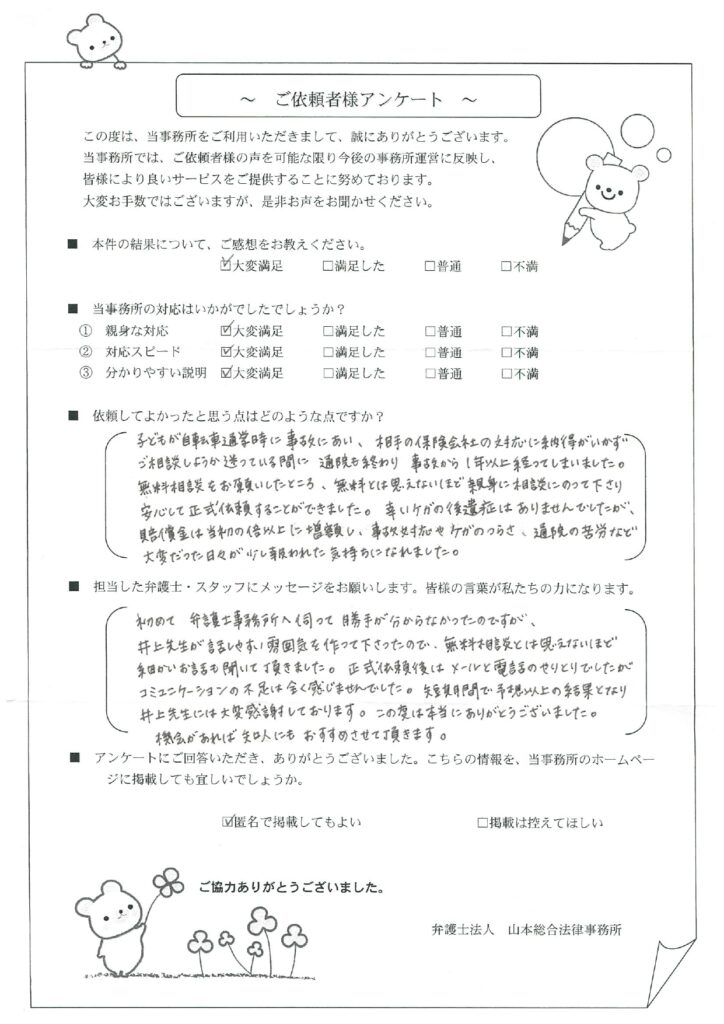 ～　ご依頼者様アンケート　～
この度は、当事務所をご利用いただきまして、誠にありがとうございます。
当事務所では、ご依頼者様の声を可能な限り今後の事務所運営に反映し、
皆様により良いサービスをご提供することに努めております。
大変お手数ではございますが、是非お声をお聞かせください。
■　本件の結果について、ご感想をお教えください。
☑大変満足　□満足した　□普通　□不満
■　当事務所の対応はいかがでしたでしょうか？
①　親身な対応　☑大変満足　□満足した　□普通　□不満
②　対応スピード　☑大変満足　□満足した　□普通　□不満
③　分かりやすい説明　☑大変満足　□満足した　□普通　□不満
■　依頼してよかったと思う点はどのような点ですか？
子どもが自転車通学時に事故にあい、相手の保険会社の対応に納得がいかず
ご相談しようか迷っている間に通院も終わり事故から1年以上経ってしまいました。
無料相談をお願いしたところ、無料とは思えないほど親身に相談にのって下さり
安心して正式依頼することができました。幸いケガの後遺症はありませんでしたが、
賠償金は当初の倍以上に増額し、事故対応やケガのつらさ、通院の苦労など
大変だった日々が少し報われた気持ちになれました。
■　担当した弁護士・スタッフにメッセージをお願いします。皆様の言葉が私たちの力になります。
初めて弁護士事務所へ伺って勝手が分からなかったのですが、
井上先生が話しやすい雰囲気を作って下さったので、無料相談とは思えないほど
細かいお話も聞いて頂きました。正式依頼後はメールと電話のやりとりでしたが
コミュニケーションの不足は全く感じませんでした。短期間で予想以上の結果となり
井上先生には大変感謝しております。この度は本当にありがとうございました。
機会があれば知人にもおすすめさせて頂きます。
■　アンケートにご回答いただき、ありがとうございました。こちらの情報を、当事務所のホームペー
ジに掲載しても宜しいでしょうか。
☑匿名で掲載してもよい　□掲載は控えてほしい
ご協力ありがとうございました。
弁護士法人　山本総合法律事務所